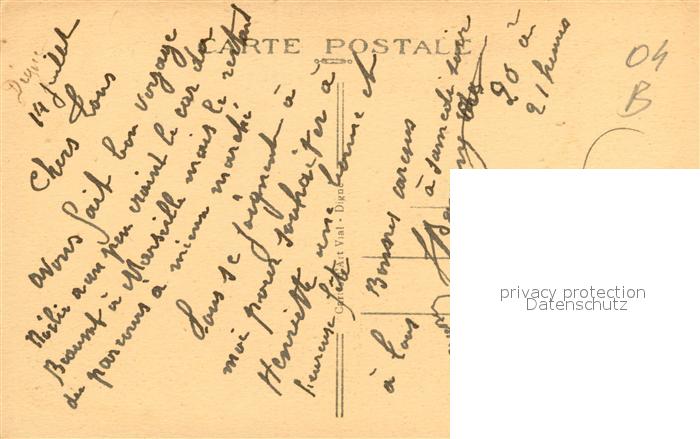 CARTE POSTALE
Digne
14 juillet
Chers Tous
avons fait bon voyage
Nélie a un peu craint le car de
Beaumt à Marseille mais le restant
du parcours à mieux marché
Tous se joignent à
moi pour souhaiter à
Henriette une bonne et
heureuse fête
Bonnes caresses
à tous
à samedi soir
20 à
21 heures
04
B
Art Vial - Digne
privacy protection
Datenschutz